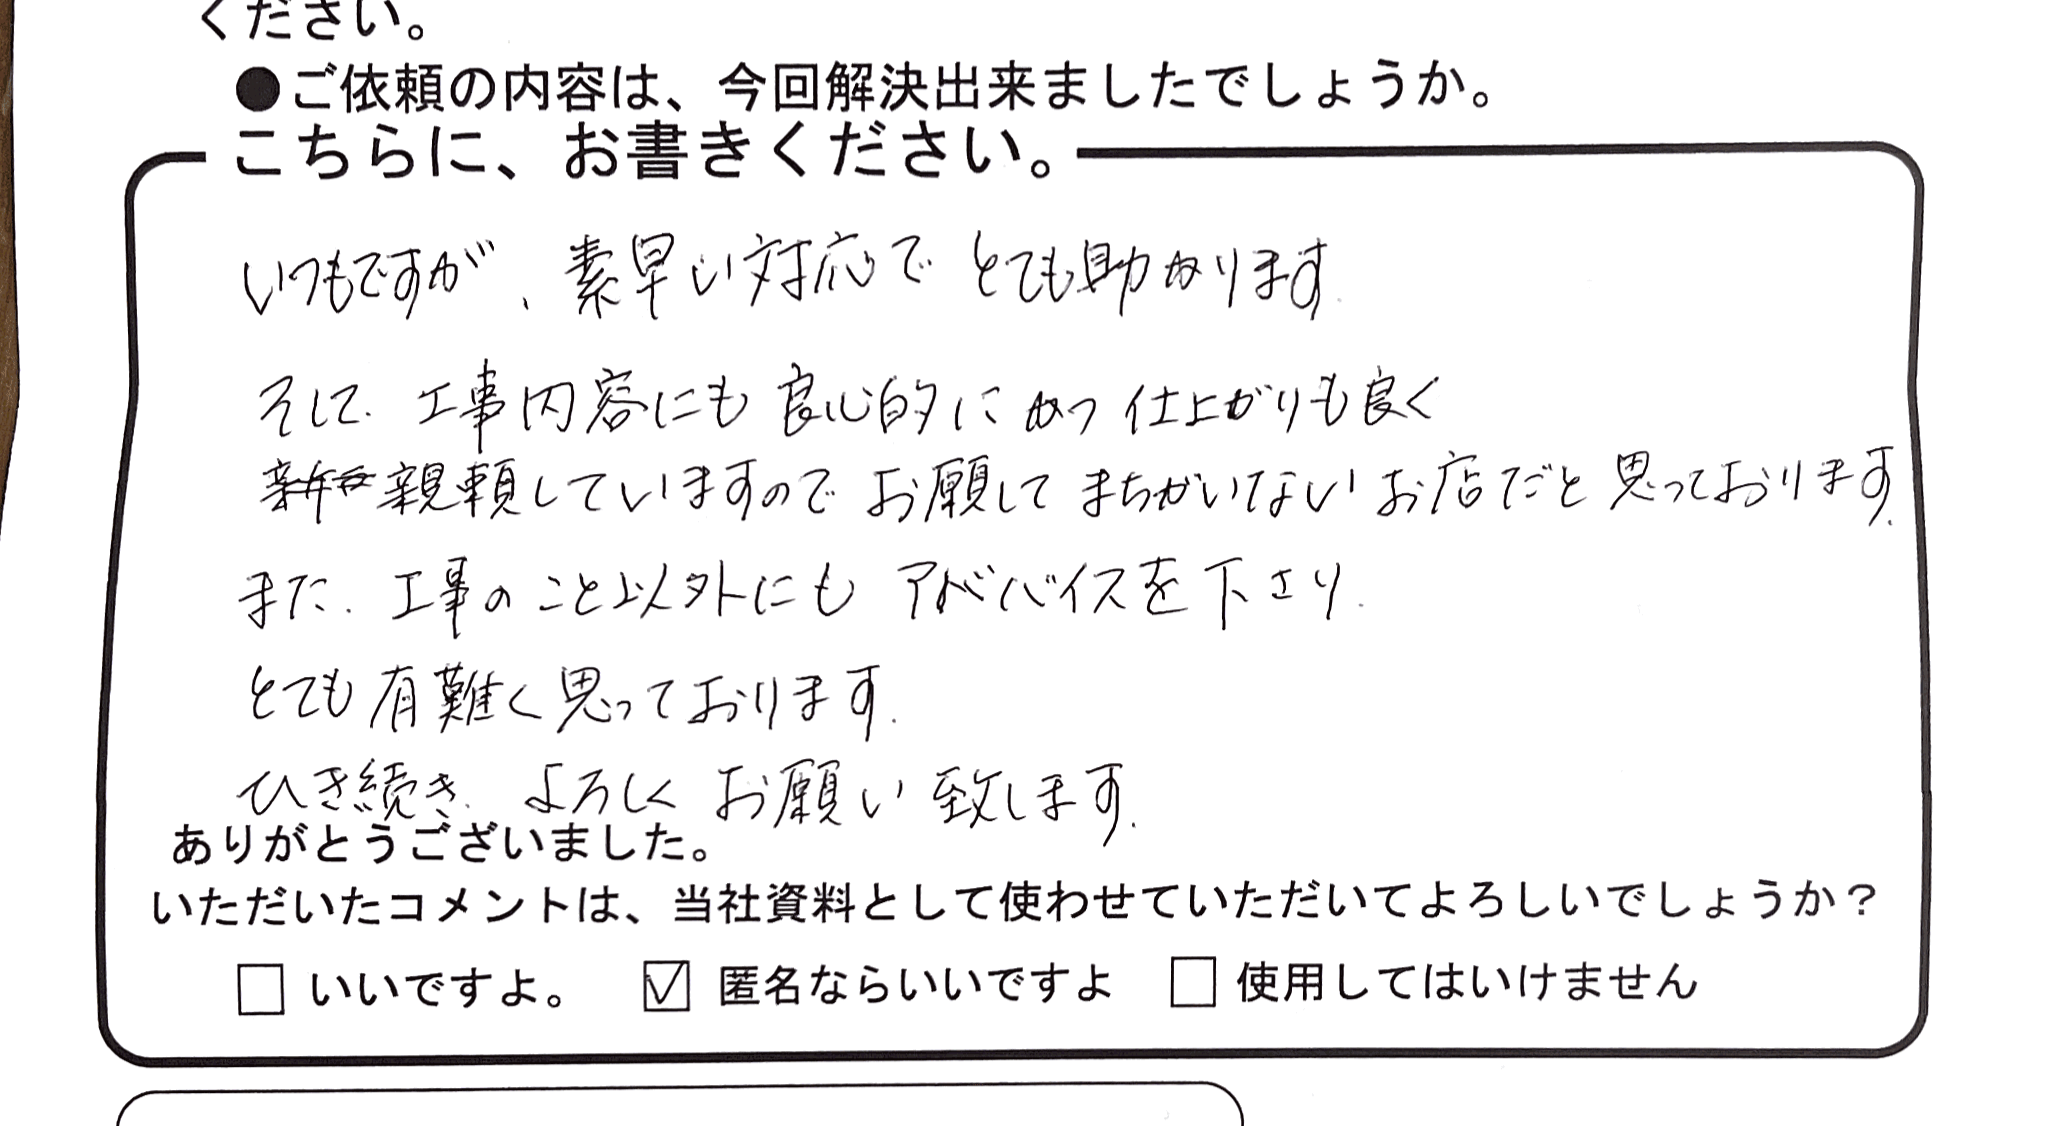 ください。
●ご依頼の内容は、今回解決出来ましたでしょうか。
こちらに、お書きください。
いつもですが、素早い対応で とても助かります.
そして. 工事内容にも 良心的に かつ 仕上がりも良く
親頼していますので お願して まちがいない お店だと 思っております.
また. 工事のこと以外にも アドバイスを 下さり.
とても 有難く 思っております.
ひき続き. よろしく お願い 致します.
ありがとうございました。
いただいたコメントは、当社資料として使わせていただいてよろしいでしょうか？
□ いいですよ。 ☑ 匿名ならいいですよ □ 使用してはいけません